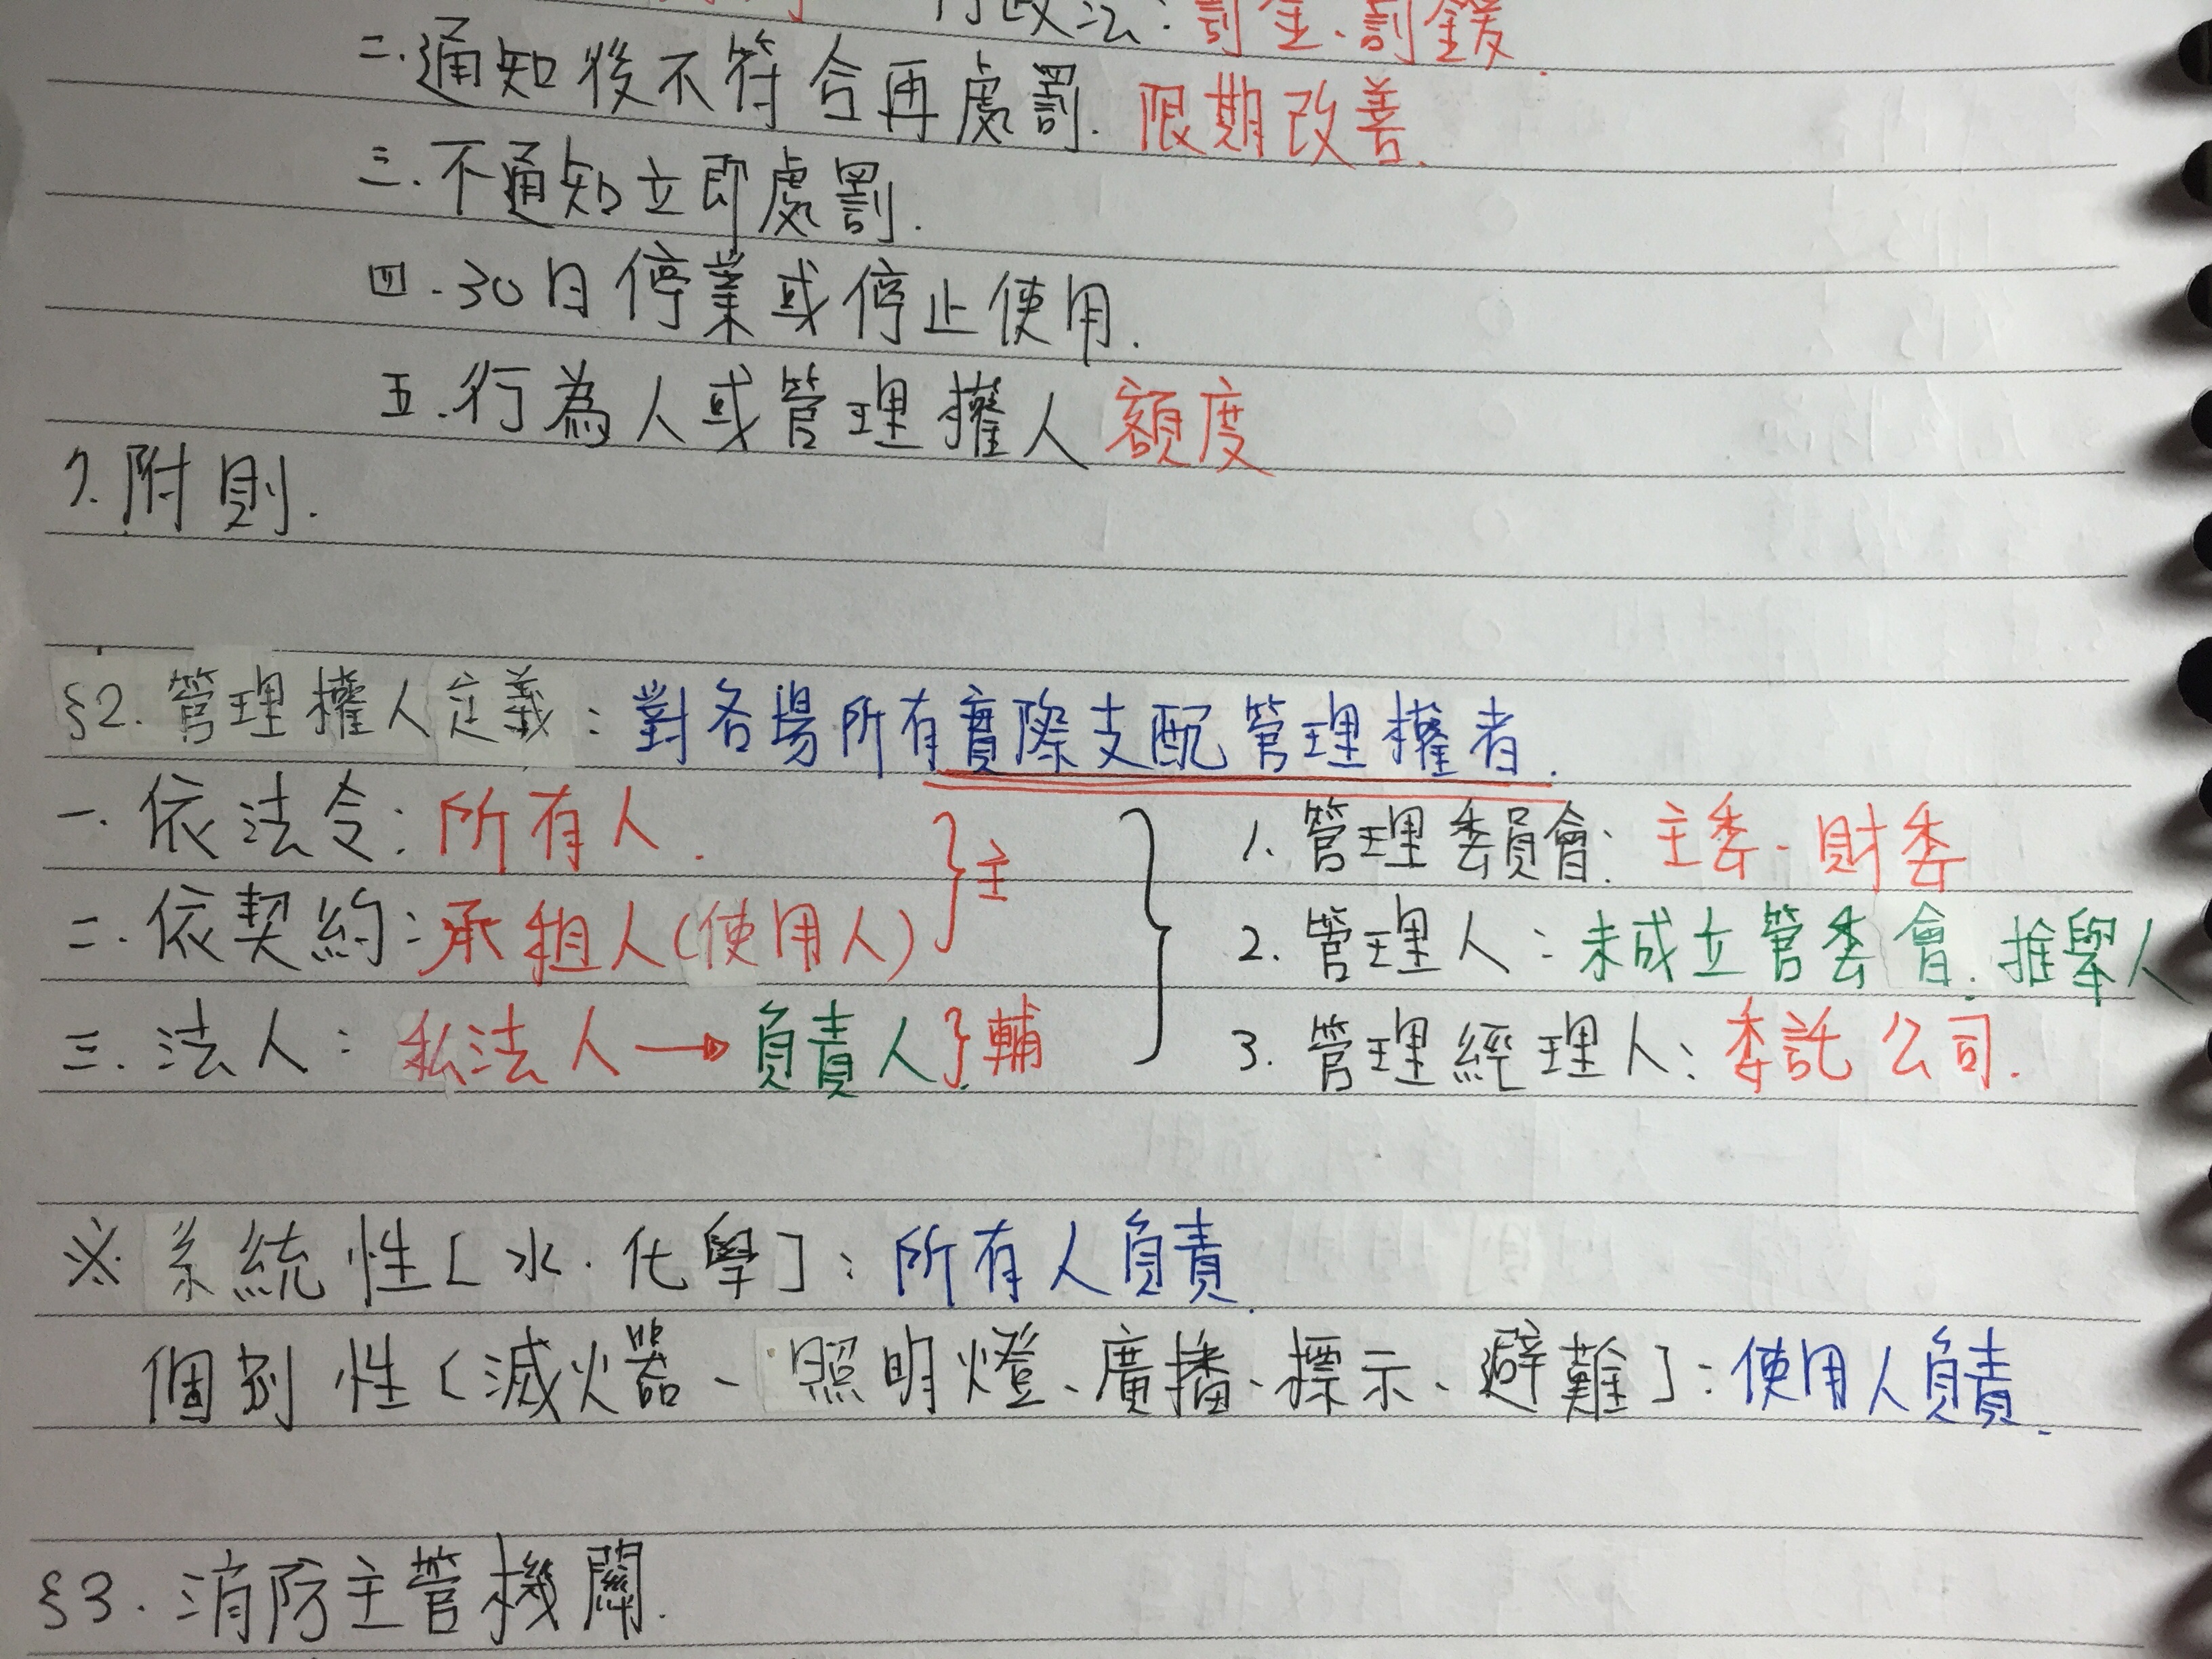 行政法:罰金、罰鍰
二.通知後不符合再處罰.限期改善.
三.不通知立即處罰.
四.30日停業或停止使用.
五.行為人或管理權人額度
7.附則.
§2.管理權人定義:對各場所有實際支配管理權者.
一.依法令:所有人.
二.依契約:承租人(使用人) }主
三.法人:私法人→負責人}輔
1.管理委員會:主委、財委
2.管理人:未成立管委會.推舉人
3.管理經理人:委託公司.
※系統性[水.化學]:所有人負責.
個別性[滅火器、照明燈、廣播、標示、避難]:使用人負責.
§3.消防主管機關.